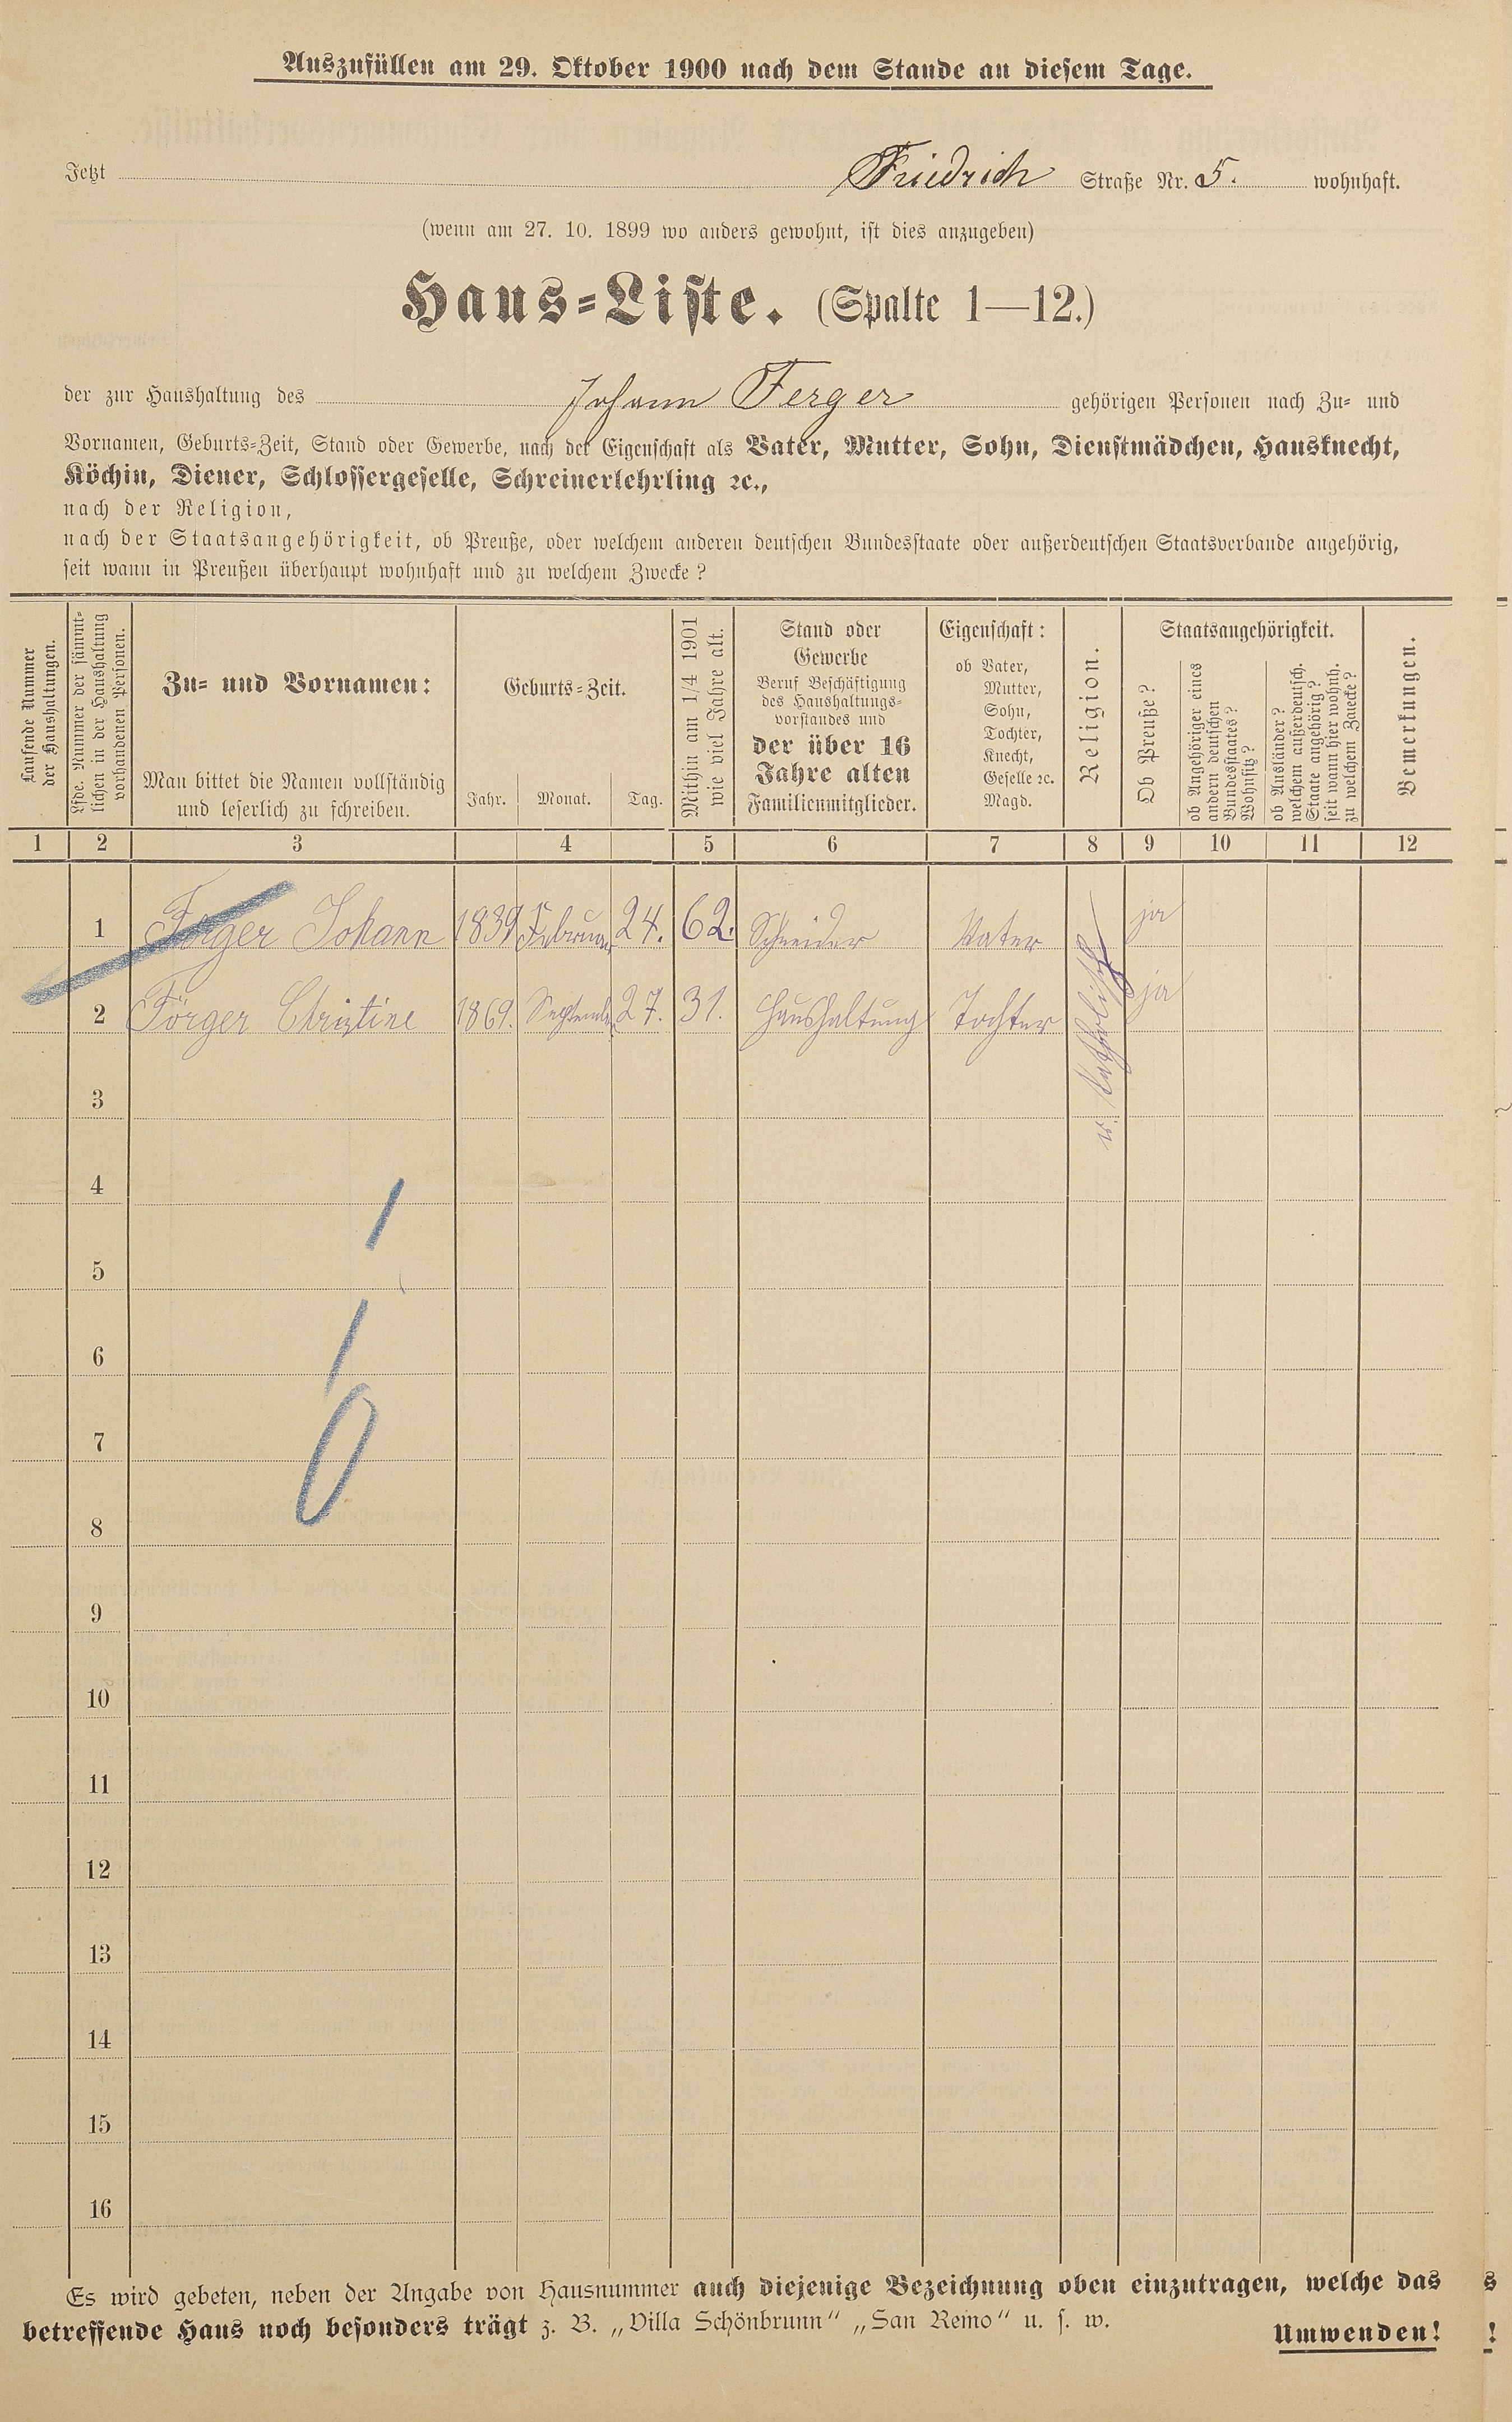 Auszufüllen am 29. Oktober 1900 nach dem Stande an diesem Tage.
Jetzt Friedrich Straße Nr. 5. wohnhaft.
(wenn am 27. 10. 1899 wo anders gewohnt, ist dies anzugeben)
Haus-Liste. (Spalte 1—12.)
der zur Haushaltung des Johann Ferger gehörigen Personen nach Zu- und
Vornamen, Geburts-Zeit, Stand oder Gewerbe, nach der Eigenschaft als Vater, Mutter, Sohn, Dienstmädchen, Hausknecht,
Köchin, Diener, Schlossergeselle, Schreinerlehrling ꝛc.,
nach der Religion,
nach der Staatsangehörigkeit, ob Preuße, oder welchem anderen deutschen Bundesstaate oder außerdeutschen Staatsverbande angehörig,
seit wann in Preußen überhaupt wohnhaft und zu welchem Zwecke?
Laufende Nummer
der Haushaltungen.
Lfde. Nummer der sämmt-
lichen in der Haushaltung
vorhandenen Personen.
Zu- und Vornamen:
Man bittet die Namen vollständig
und leserlich zu schreiben.
Geburts-Zeit.
Jahr. Monat. Tag.
Mithin am 1/4 1901
wie viel Jahre alt.
Stand oder
Gewerbe
Beruf Beschäftigung
des Haushaltungs-
vorstandes und
der über 16
Jahre alten
Familienmitglieder.
Eigenschaft:
ob Vater,
Mutter,
Sohn,
Tochter,
Knecht,
Geselle ꝛc.
Magd.
Religion.
Staatsangehörigkeit.
Ob Preuße?
ob Angehöriger eines
andern deutschen
Bundesstaates?
Wohnsitz?
ob Ausländer?
welchem außerdeutsch.
Staate angehörig?
seit wann hier wohnh.
zu welchem Zwecke?
Bemerkungen.
1 2 3 4 5 6 7 8 9 10 11 12
1 Förger Johann 1839 Februar 24. 62. Schneider Vater ja
2 Förger Christine 1869. September 27. 31. Haushaltung Tochter ja
katholisch
3
4
5
6
7
8
9
10
11
12
13
14
15
16
Es wird gebeten, neben der Angabe von Hausnummer auch diejenige Bezeichnung oben einzutragen, welche das
betreffende Haus noch besonders trägt z. B. „Villa Schönbrunn“ „San Remo“ u. s. w.
Umwenden!